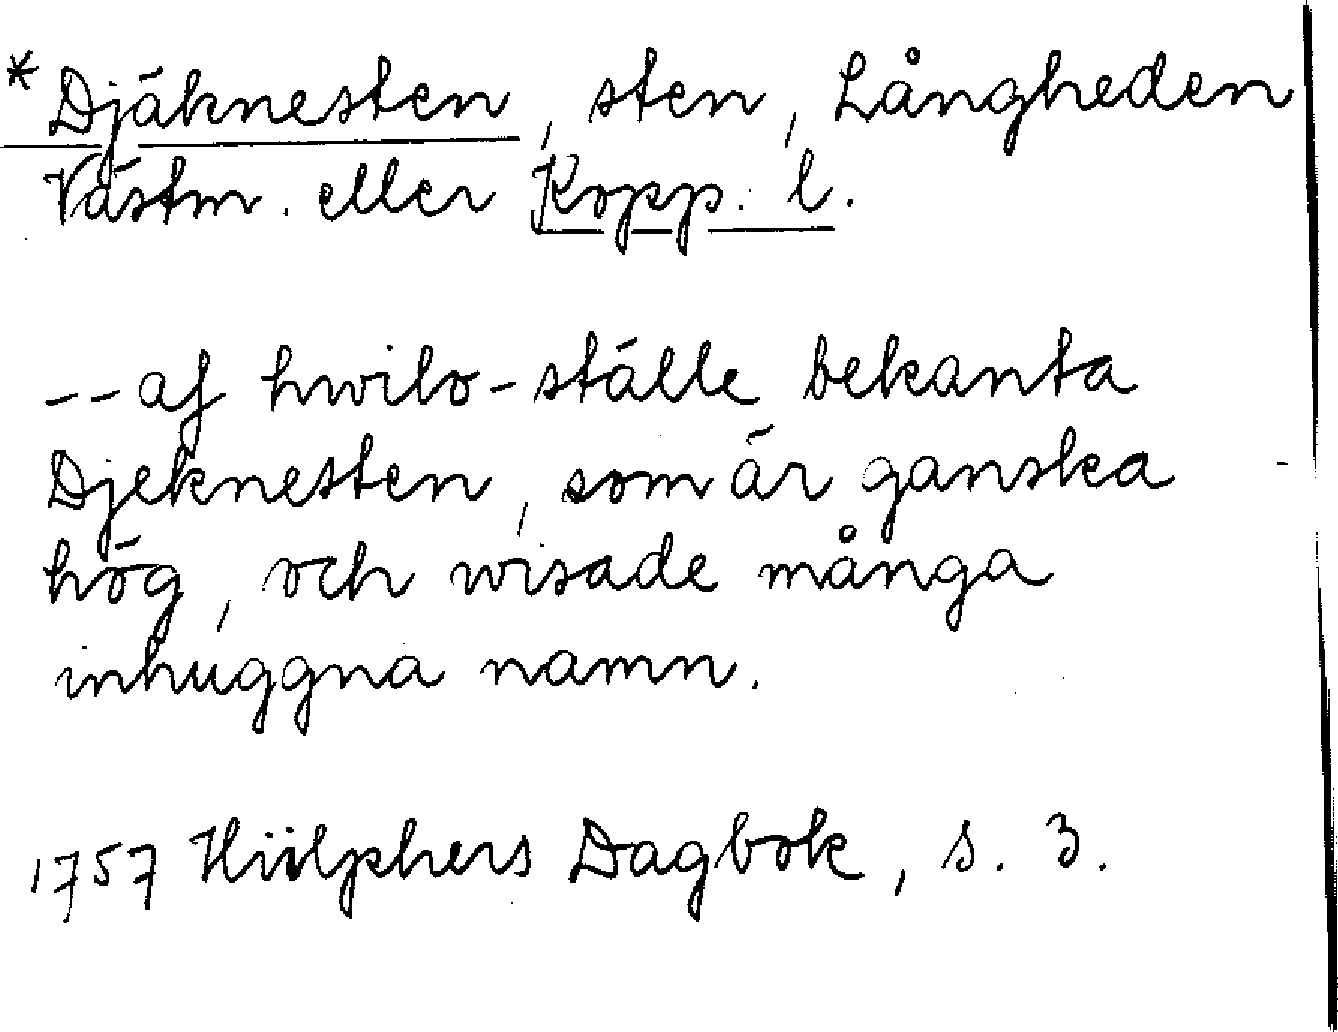 *Djäknesten, sten, Långheden
Västm. eller Kopp. l.
-- af hwilo-ställe bekanta
Djeknesten, som är ganska
hög, och wisade många
inhuggna namn.
1757 Hülphers Dagbok, s. 3.